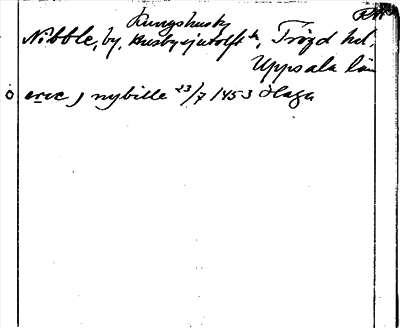 Kungshusby
Nibble, by, Husbysjutolft sn, Trögd hd,
Uppsala län
eric j nybille 23/7 1453 Haga